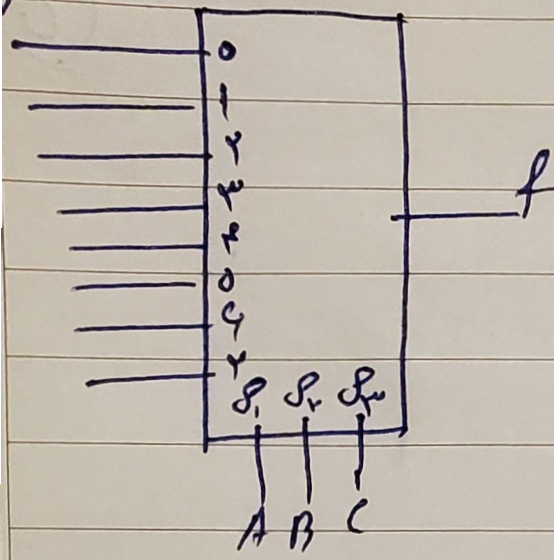 0
1
۲
۳
۴
۵
۶
۷
f
S۱ S۲ S۳
A B C